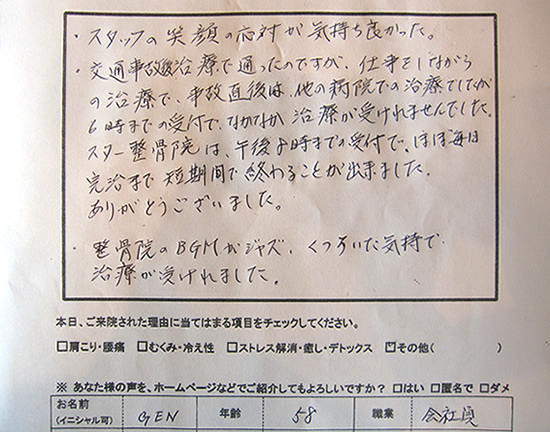 ・スタッフの笑顔の応対が気持ち良かった。
・交通事故後治療で通ったのですが、仕事をしながら
の治療で、事故直後は、他の病院での治療でしたが
6時までの受付で、なかなか治療が受けれませんでした。
スター整骨院は、午後8時までの受付で、ほぼ毎日
完治まで短期間で終わることが出来ました。
ありがとうございました。
・整骨院のBGMがジャズ、くつろいた気持で
治療が受けれました。
本日、ご来院された理由に当てはまる項目をチェックしてください。
□肩こり・腰痛 □むくみ・冷え性 □ストレス解消・癒し・デトックス ☑その他( )
※ あなた様の声を、ホームページなどでご紹介してもよろしいですか？ □はい □匿名で □ダメ
お名前 (イニシャル可) GEN 年齢 58 職業 会社員